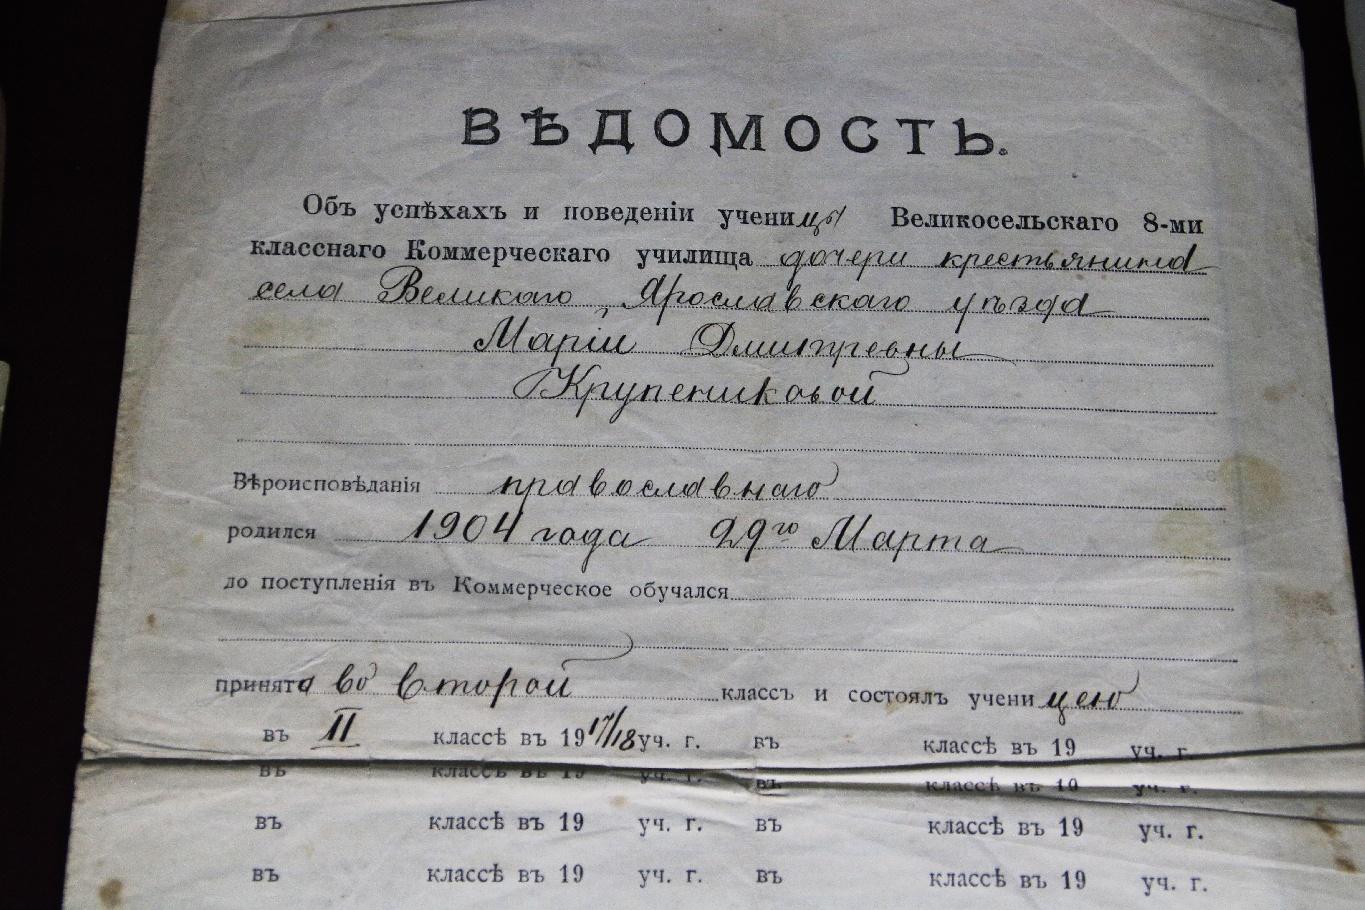 ВѢДОМОСТЬ.
Объ успѣхахъ и поведеніи ученицы Великосельскаго 8-ми
класснаго Коммерческаго училища дочери крестьянина
села Великаго, Ярославскаго уѣзда
Маріи Дмитревны
Крупениковой
Вѣроисповѣданія православнаго
родился 1904 года 29го Марта
до поступленія въ Коммерческое обучался
принята во второй классъ и состоялъ ученицею
въ II классѣ въ 1917/18 уч. г. въ классѣ въ 19 уч. г.
въ классѣ въ 19 уч. г. въ классѣ въ 19 уч. г.
въ классѣ въ 19 уч. г. въ классѣ въ 19 уч. г.
въ классѣ въ 19 уч. г. въ классѣ въ 19 уч. г.